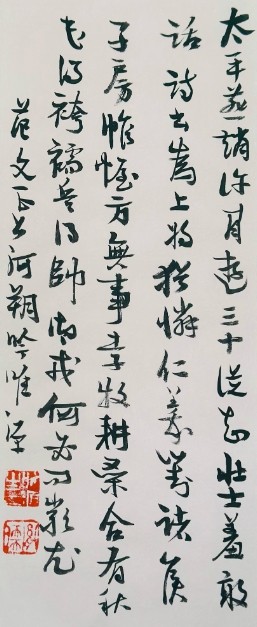 太平燕趙許閒遊三十從知壯士羞敢
話詩書為上將猶憐仁義對諸侯
子房帷幄方無事李牧耕桑合有秋
民得袴襦兵得帥御戎何必問嚴尤
范文正公河朔吟唯